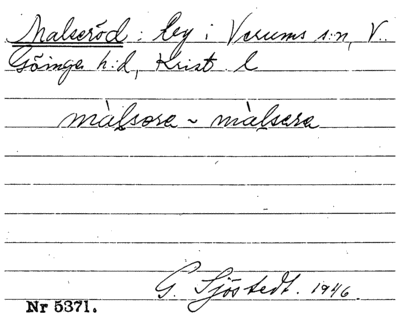 Malseröd: by i Verums s:n, V.
Göinge h:d, Krist. l
màlsora ~ màlsera
G. Sjöstedt. 1946.
Nr 5371.